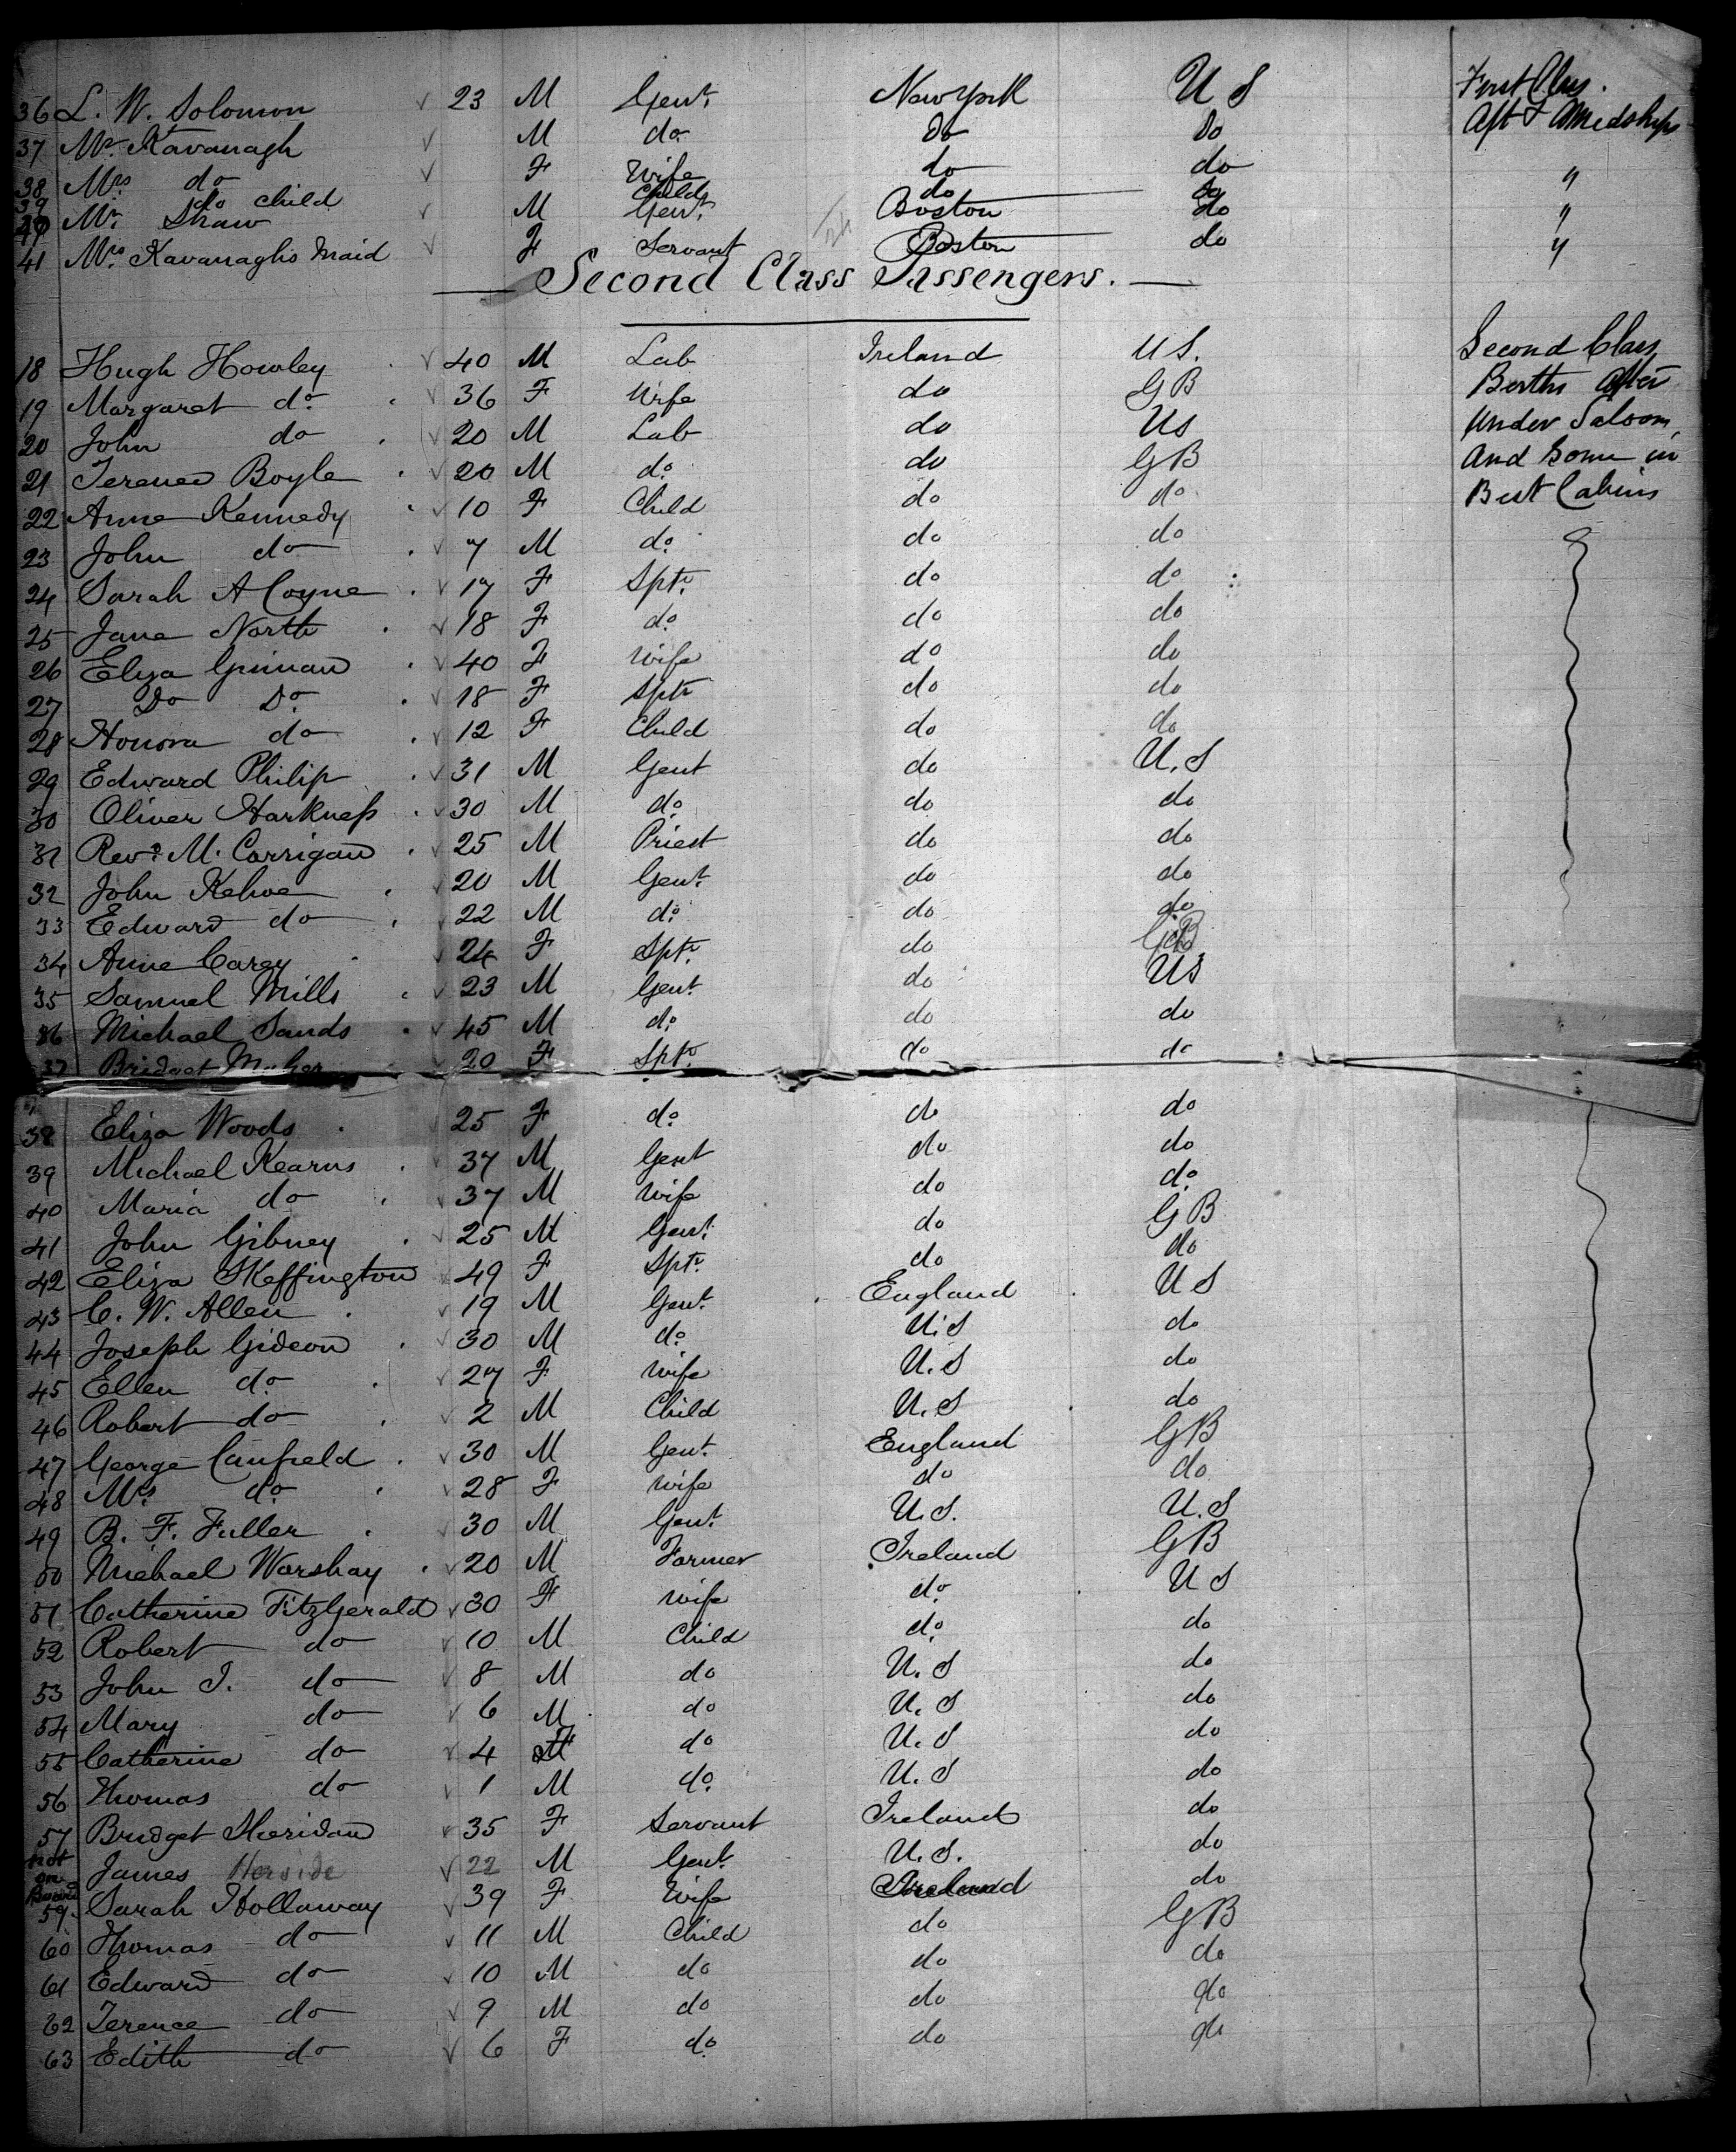 36 L. W. Solomon 23 M Gent. New York U S First Class.
37 Mr. Kavanagh M do Do Do Aft & Amedships
38 Mrs. do F Wife do do "
39 do child Child do do
40 Mr. Shaw M Gent. Boston do "
41 Mrs. Kavanaghs Maid F Servant Boston do "
Second Class Passengers.
18 Hugh Howley 40 M Lab Ireland U S. Second Class
19 Margaret do. 36 F Wife do G B Berths After
20 John do 20 M Lab do U s Under Saloon,
21 Terence Boyle 20 M do. do G B And Some in
22 Anne Kennedy 10 F Child do do Best Cabins
23 John do 7 M do. do do
24 Sarah A Coyne 17 F Sptr. do do
25 Jane North 18 F do. do do
26 Eliza Guinan 40 F Wife do do
27 Do Do. 18 F Sptr do do
28 Honora do 12 F Child do do
29 Edward Philip 31 M Gent do U. S
30 Oliver Harkness 30 M do. do do
31 Revd. M. Corrigan 25 M Priest do do
32 John Kehoe 20 M Gent. do do
33 Edward do 22 M do. do do
34 Anne Carey 24 F Sptr. do G B
35 Samuel Mills 23 M Gent. do U S
36 Michael Sands 45 M do. do do
37 Bridget Maher 20 F Sptr. do do
38 Eliza Woods 25 F do. do do
39 Michael Kearns 37 M Gent do do
40 Maria do 37 M Wife do do.
41 John Gibney 25 M Gent. do G B
42 Eliza Skeffington 49 F Sptr. do do
43 C. W. Allen 19 M Gent. England U S
44 Joseph Gideon 30 M do. U. S do
45 Ellen do. 27 F Wife U. S do
46 Robert do 2 M Child U. S do
47 George Canfield 30 M Gent. England G B
48 Mrs. do. 28 F Wife do do
49 B. F. Fuller 30 M Gent. U. S. U. S
50 Michael Warshay 20 M Farmer Ireland G B
51 Catherine FitzGerald 30 F Wife do. U S
52 Robert do 10 M Child do. do
53 John J. do 8 M do U. S do
54 Mary do 6 M do U. S do
55 Catherine do 4 F do U. S do
56 Thomas do 1 M do. U. S do
57 Bridget Sheridan 35 F Servant Ireland do
not on Board James 22 M Gent. U. S. do
59. Sarah Hollaway 39 F Wife Ireland do
60 Thomas do 11 M Child do G B
61 Edward do 10 M do do do
62 Terence do 9 M do do do
63 Edith do 6 F do. do do